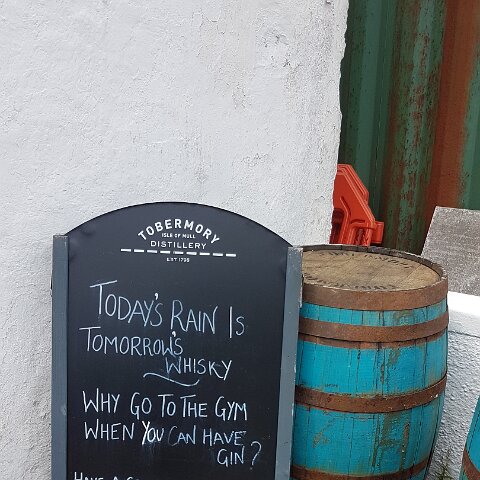 TOBERMORY
ISLE OF MULL
DISTILLERY
EST 1798
TODAY'S RAIN IS
TOMORROW'S
WHISKY
WHY GO TO THE GYM
WHEN YOU CAN HAVE
GIN?
HAVE A